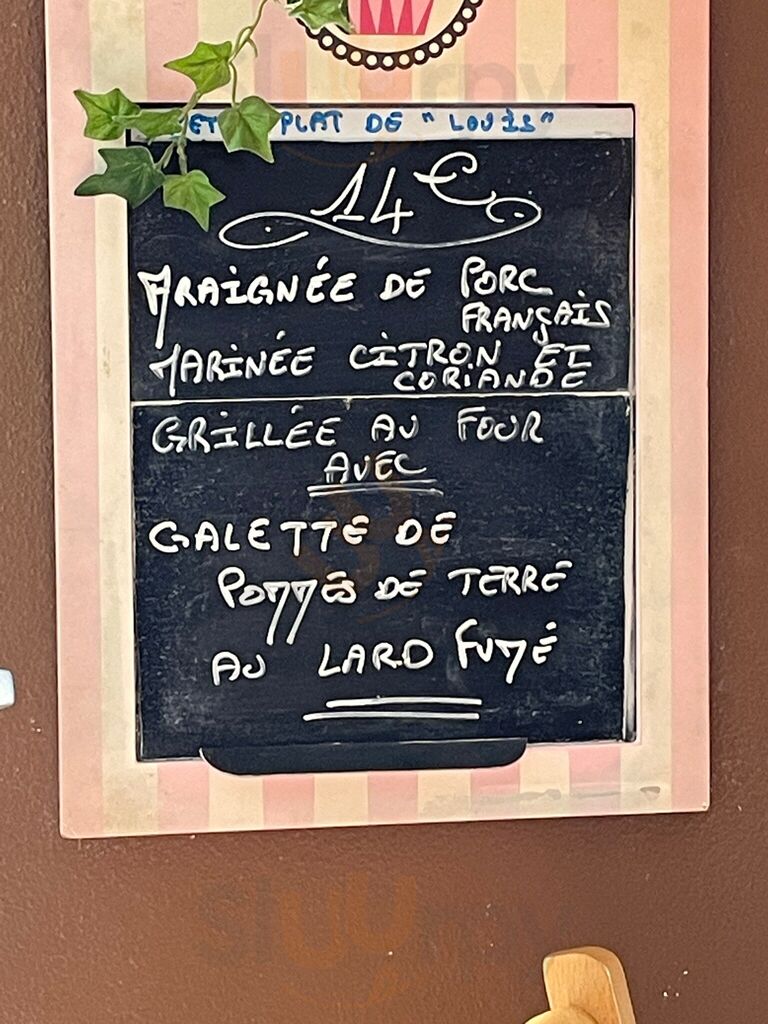 ET PLAT DE "LOUIS"
14€
ARAIGNÉE DE PORC
FRANÇAIS
MARINÉE CITRON ET
CORIANDE
GRILLÉE AU FOUR
AVEC
GALETTE DE
POMMES DE TERRE
AU LARD FUMÉ
sluurpy